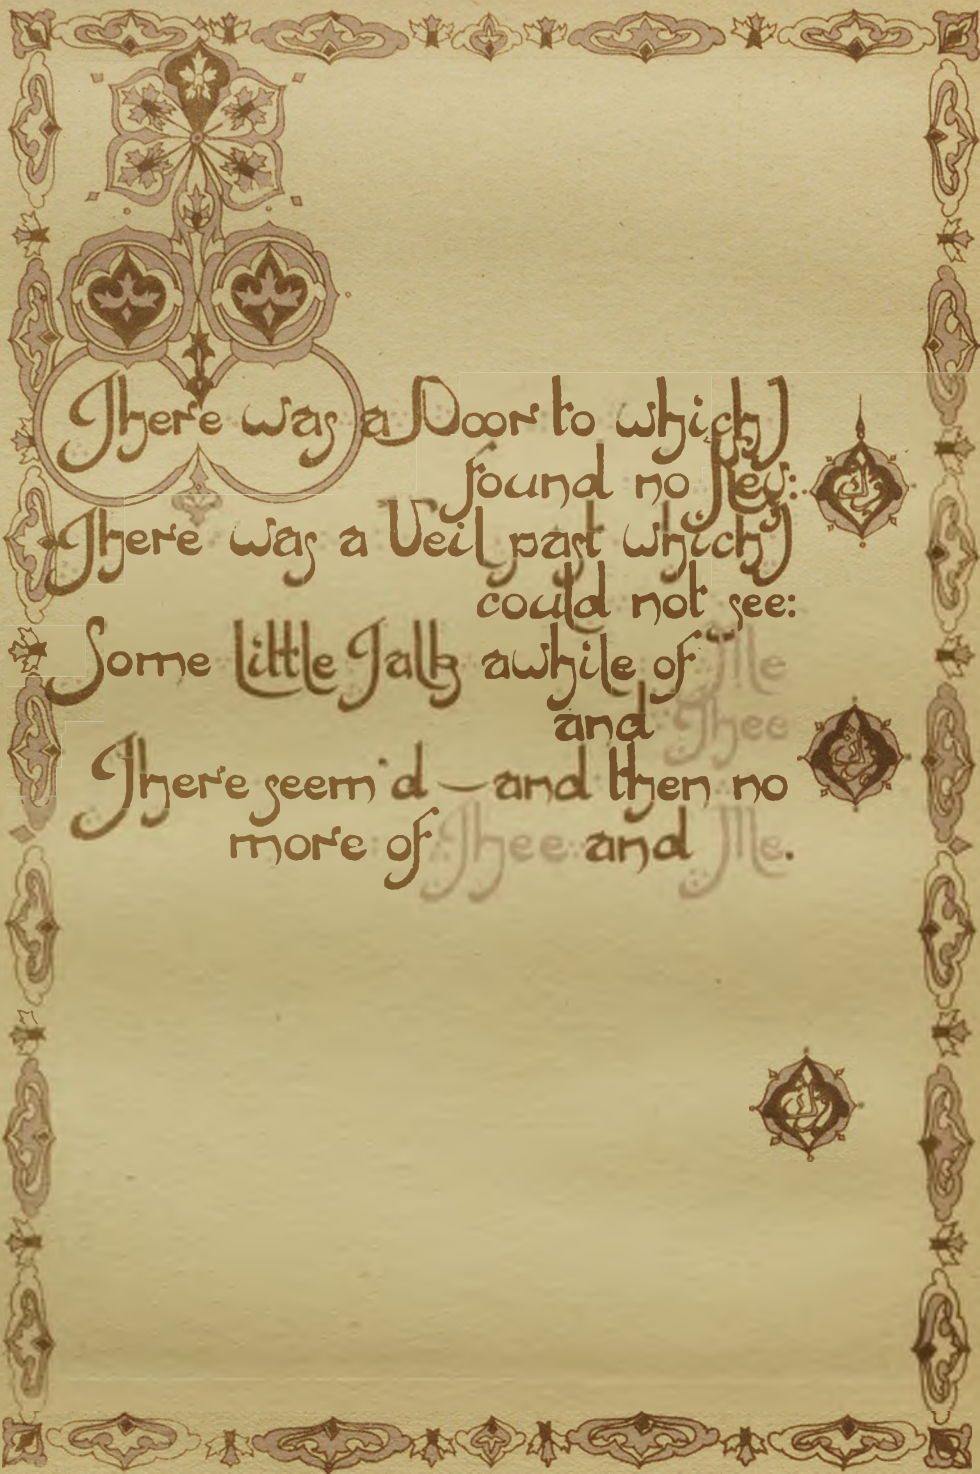 There was a Door to which I
found no Key:
There was a Veil past which I
could not see:
Some Little Talk awhile of Me
and Thee
There seem'd—and then no
more of Thee and Me.